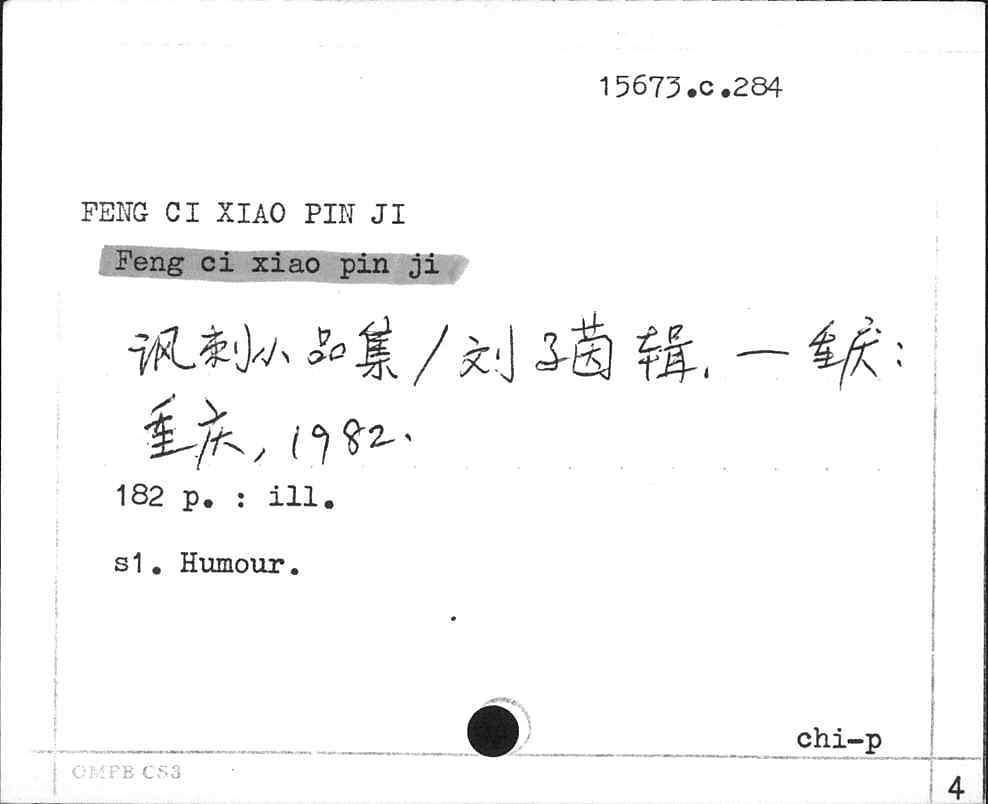 15673.c.284
FENG CI XIAO PIN JI
Feng ci xiao pin ji
讽刺小品集/刘子茵辑. — 重庆:
重庆, 1982.
182 p. : ill.
s1. Humour.
chi-p
OMPB CS3
4